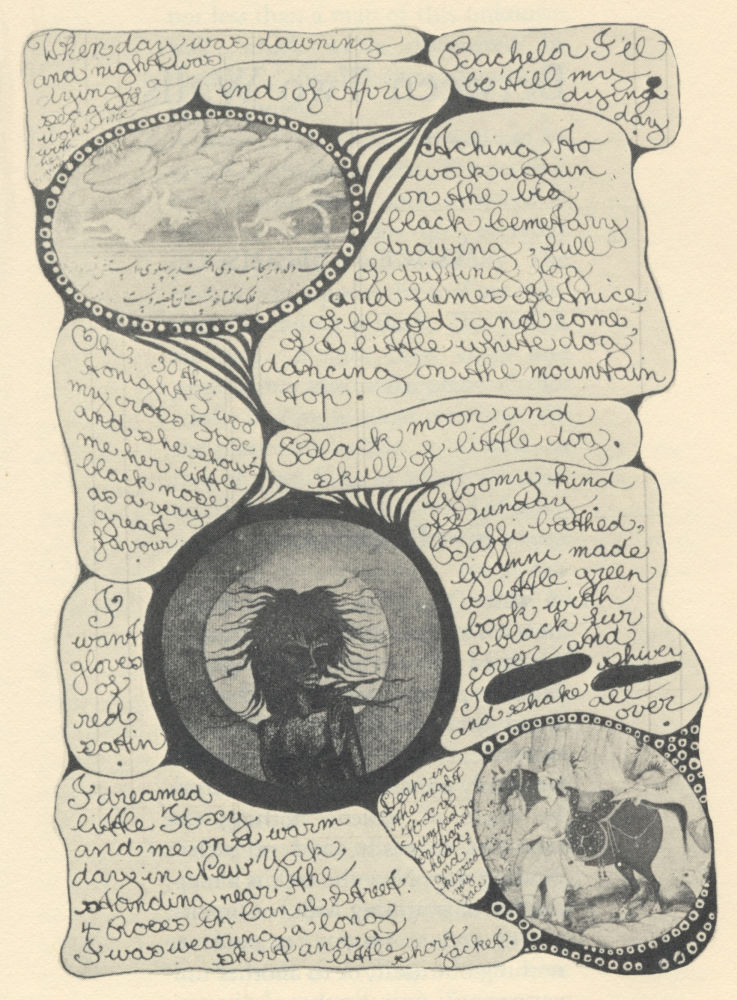 When day was dawning
and night was
dying a
sea gull
woke me
with
end of April
Bachelor I'll
be till my
dying
day
Aching to
work again
on the big
black Cemetary
drawing, full
of drifting fog
and fumes of Anice,
of blood and come,
of a little white dog,
dancing on the mountain
top.
Oh, 30th:
tonight I woo
my cross Foxe
and she shows
me her little
black nose
as a very
great
favour.
Black moon and
skull of little dog.
Gloomy kind
of Sunday.
Baffi bathed,
Gianni made
a little green
book with
a black fur
cover and
I shiver
and shake all
over.
I
want
gloves
of
red
satin
I dreamed
little Foxy
and me on a warm
day in New York,
standing near the
4 Roses in Canal Street.
I was wearing a long
skirt and a
little short
jacket.
Deep in
the night
Foxy
jumped
on Gianni's
head
and
kissed
my
face